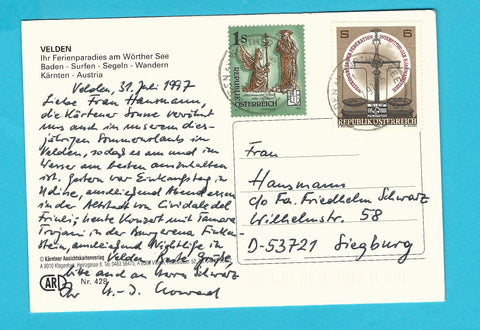 VELDEN
Ihr Ferienparadies am Wörther See
Baden - Surfen - Segeln - Wandern
Kärnten - Austria
Velden, 31. Juli 1997
Liebe Frau Hansmann,
die Kärtener Sonne verwöhnt
uns auch in unserem dies-
jährigen Sommerurlaub in
Velden, so daß es am und im
Wasser am besten auszuhalten
ist. Gestern war Einkaufstag in
Udine, anschließend Abendessen
in der Altstadt von Cividale del
Friuli; heute Konzert mit Tamara
Trojani in der Burgarena Finken-
stein, anschließend Nightlife in
Velden. Beste Grüße,
bitte auch an Herrn Schwarz
Ihr H.-J. Conrad
© Kärntner Ansichtskartenverlag
Nr. 428
1s
REPUBLIK
ÖSTERREICH
6 S
REPUBLIK ÖSTERREICH
Frau
Hansmann
c/o Fa. Friedhelm Schwarz
Wilhelmstr. 58
D-53721 Siegburg